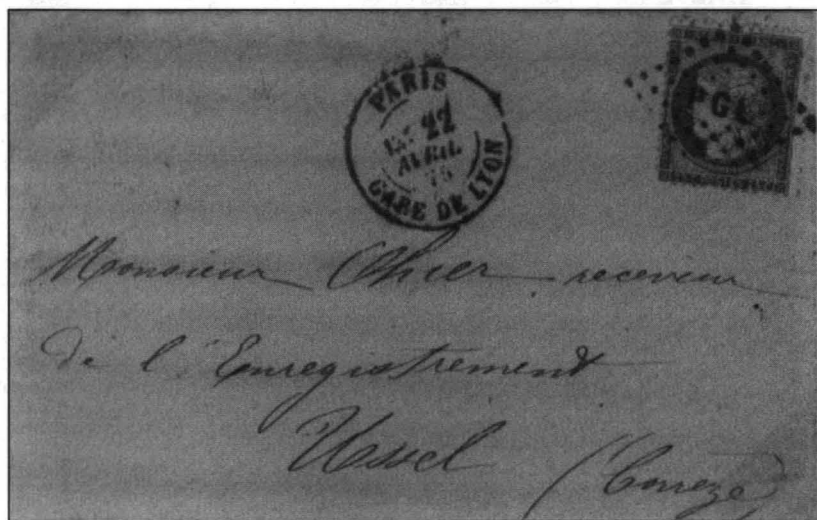 PARIS
22
AVRIL
75
GARE DE LYON
Monsieur Ohier receveur
de l'Enregistrement
Ussel (Correze)